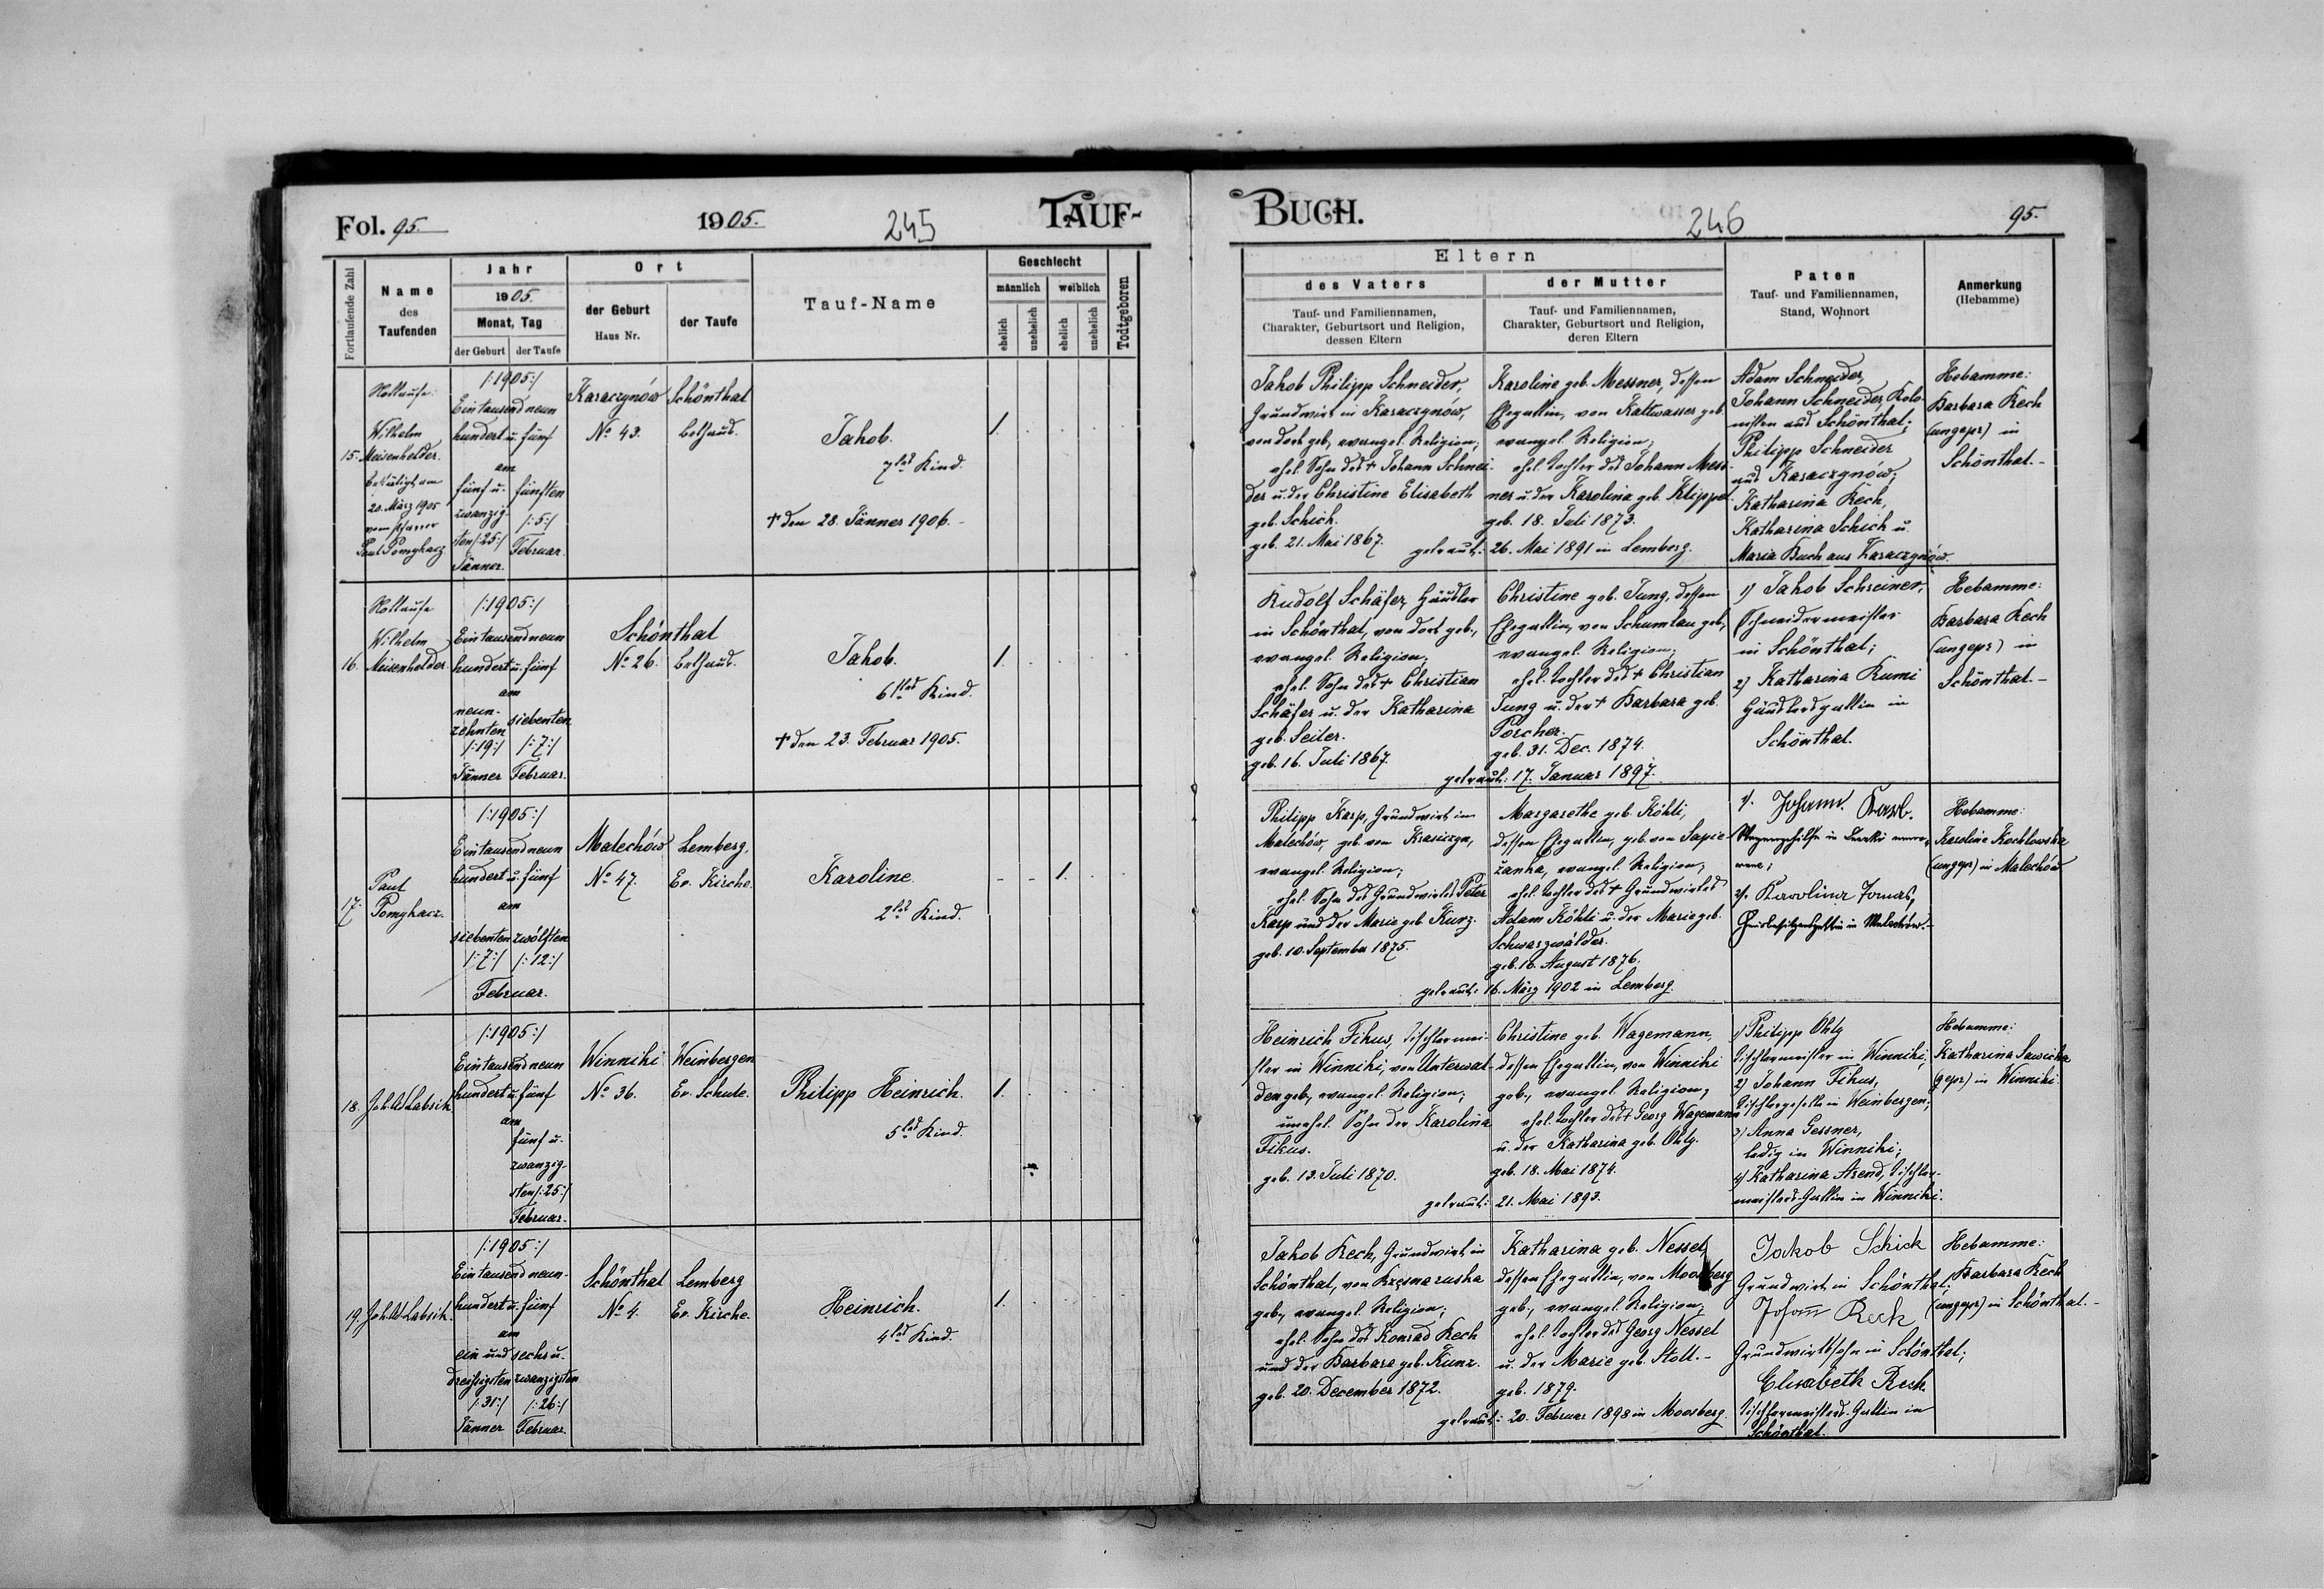 Fol. 95.
1905.
245
TAUF-
Fortlaufende Zahl
Name
des
Taufenden
Jahr
1905.
Monat, Tag
der Geburt
der Taufe
Ort
der Geburt
Haus Nr.
der Taufe
Tauf-Name
Geschlecht
männlich
weiblich
ehelich
unehelich
ehelich
unehelich
Todtgeboren
15.
Nottaufe:
Wilhelm
Meisenhelder.
bestätigt am
20. März 1905
vom Pfarrer
Paul Pomykacz
/:1905:/
Eintausend neun
hundert u. fünf
am
fünf u.
zwanzig-
sten /:25:/
Jänner.
fünften
/:5:/
Februar.
Karaczynów
No 43.
Schönthal
Bethaus.
Jakob.
7tes Kind.
† den 28. Jänner 1906.-
1.
16.
Nottaufe
Wilhelm
Meisenhelder
/:1905:/
Eintausend neun
hundert u. fünf
am
neun-
zehnten
/:19:/
Jänner
siebenten
/:7:/
Februar.
Schönthal
No 26.
Bethaus.
Jakob.
6tes Kind.
† den 23. Februar 1905.
1.
17.
Paul
Pomykacz.
/:1905:/
Eintausend neun
hundert u. fünf
am
siebenten zwölften
/:7:/ /:12:/
Februar.
Malechów
No 47.
Lemberg,
Ev. Kirche.
Karoline.
2tes Kind.
1.
18.
Joh. Labsik
/:1905:/
Eintausend neun
hundert u. fünf
am
fünf u.
zwanzig-
sten /:25:/
Februar.
Winniki
No 36.
Weinbergen
Ev. Schule.
Philipp Heinrich.
5tes Kind.
1.
19.
Joh. Labsik.
/:1905:/
Eintausend neun-
hundert u. fünf
am
ein und sechs u.
dreißigsten zwanzigsten
/:31:/ /:26:/
Jänner Februar
Schönthal
No 4.
Lemberg
Ev. Kirche.
Heinrich.
4tes Kind.
1.
BUCH.
246
95.
Eltern
des Vaters
Tauf- und Familiennamen,
Charakter, Geburtsort und Religion,
dessen Eltern
der Mutter
Tauf- und Familiennamen,
Charakter, Geburtsort und Religion,
deren Eltern
Paten
Tauf- und Familiennamen,
Stand, Wohnort
Anmerkung
(Hebamme)
Jakob Philipp Schneider,
Grundwirt in Karaczynów,
von dort geb., evangel. Religion;
ehel. Sohn des † Johann Schnei-
der u. der Christine Elisabeth
geb. Schick.
geb. 21. Mai 1867.
Karoline geb. Messner, dessen
Ehegattin, von Kaltwasser geb.
evangel. Religion;
ehel. Tochter des Johann Mess-
ner u. der Karolina geb. Klippel.
geb. 18. Juli 1873.
getraut: 26. Mai 1891 in Lemberg.
Adam Schneider,
Johann Schneider, Kolo-
nisten aus Schönthal;
Philipp Schneider
aus Karaczynów;
Katharina Rech,
Katharina Schick u.
Maria Buch aus Karaczynów.
Hebamme:
Barbara Rech
(ungepr) in
Schönthal.-
Rudolf Schäfer, Häusler
in Schönthal, von dort geb.,
evangel. Religion;
ehel. Sohn des † Christian
Schäfer u. der Katharina
geb. Seiler.
geb. 16. Juli 1867.
Christine geb. Jung, dessen
Ehegattin, von Schumlau geb.,
evangel. Religion;
ehel. Tochter des † Christian
Jung u. der † Barbara geb.
Porcher.
geb. 31. Dec. 1874.
getraut: 17. Januar 1897.
1) Jakob Schreiner,
Schneidermeister
in Schönthal;
2) Katharina Rumi
Häuslersgattin in
Schönthal.
Hebamme:
Barbara Rech
(ungepr) in
Schönthal.-
Philipp Karp, Grundwirt in
Malechów, geb. von
evangel. Religion;
ehel. Sohn des Grundwirtes Peter
Karp und der Maria geb. Kurz.
geb. 10. September 1875.
Margarethe geb. Köhli,
dessen Ehegattin, geb. von Sapie-
żanka, evangel. Religion;
ehel. Tochter des † Grundwirtes
Adam Köhli u. der Marie geb.
Schwarzwälder.
geb. 16. August 1876.
getraut: 16. März 1902 in Lemberg.
1). Johann Karb.
2). Karolina Tomas,
Hausbesitzersgattin in Malechów.-
Hebamme:
Karoline Kochlowska
(ungepr) in Malechów
Heinrich Fikus, Tischlermei-
ster in Winniki, von Unterwal-
den geb., evangel. Religion;
unehel. Sohn der Karolina
Fikus.
geb. 13. Juli 1870.
Christine geb. Wagemann,
dessen Ehegattin, von Winniki
geb., evangel. Religion;
ehel. Tochter des † Georg Wagemann
u. der Katharina geb. Ohlg.
geb. 18. Mai 1874.
getraut: 21. Mai 1893.
1) Philipp Ohlg
Tischlermeister in Winniki;
2) Johann Fikus,
Tischlergeselle in Weinbergen;
3) Anna Gessner,
ledig in Winniki;
4) Katharina Arend, Tischler-
meisters-Gattin in Winniki.
Hebamme:
Katharina Sawicka
(gepr) in Winniki.
Jakob Rech, Grundwirt in
Schönthal, von Krzęsna ruska
geb., evangel. Religion;
ehel. Sohn des Konrad Rech
und der Barbara geb. Kunz.
geb. 20. December 1872.
Katharina geb. Nessel,
dessen Ehegattin, von Moosberg
geb., evangel. Religion;
ehel. Tochter des Georg Nessel
u. der Marie geb. Stoll.-
geb. 1879.
getraut: 20. Februar 1898 in Moosberg.
Jakob Schick
Grundwirt in Schönthal;
Johann Reck
Grundwirtssohn in Schönthal;
Elisabeth Rech
Tischlermeisters-Gattin in
Schönthal.
Hebamme:
Barbara Rech
(ungepr) in Schönthal.-